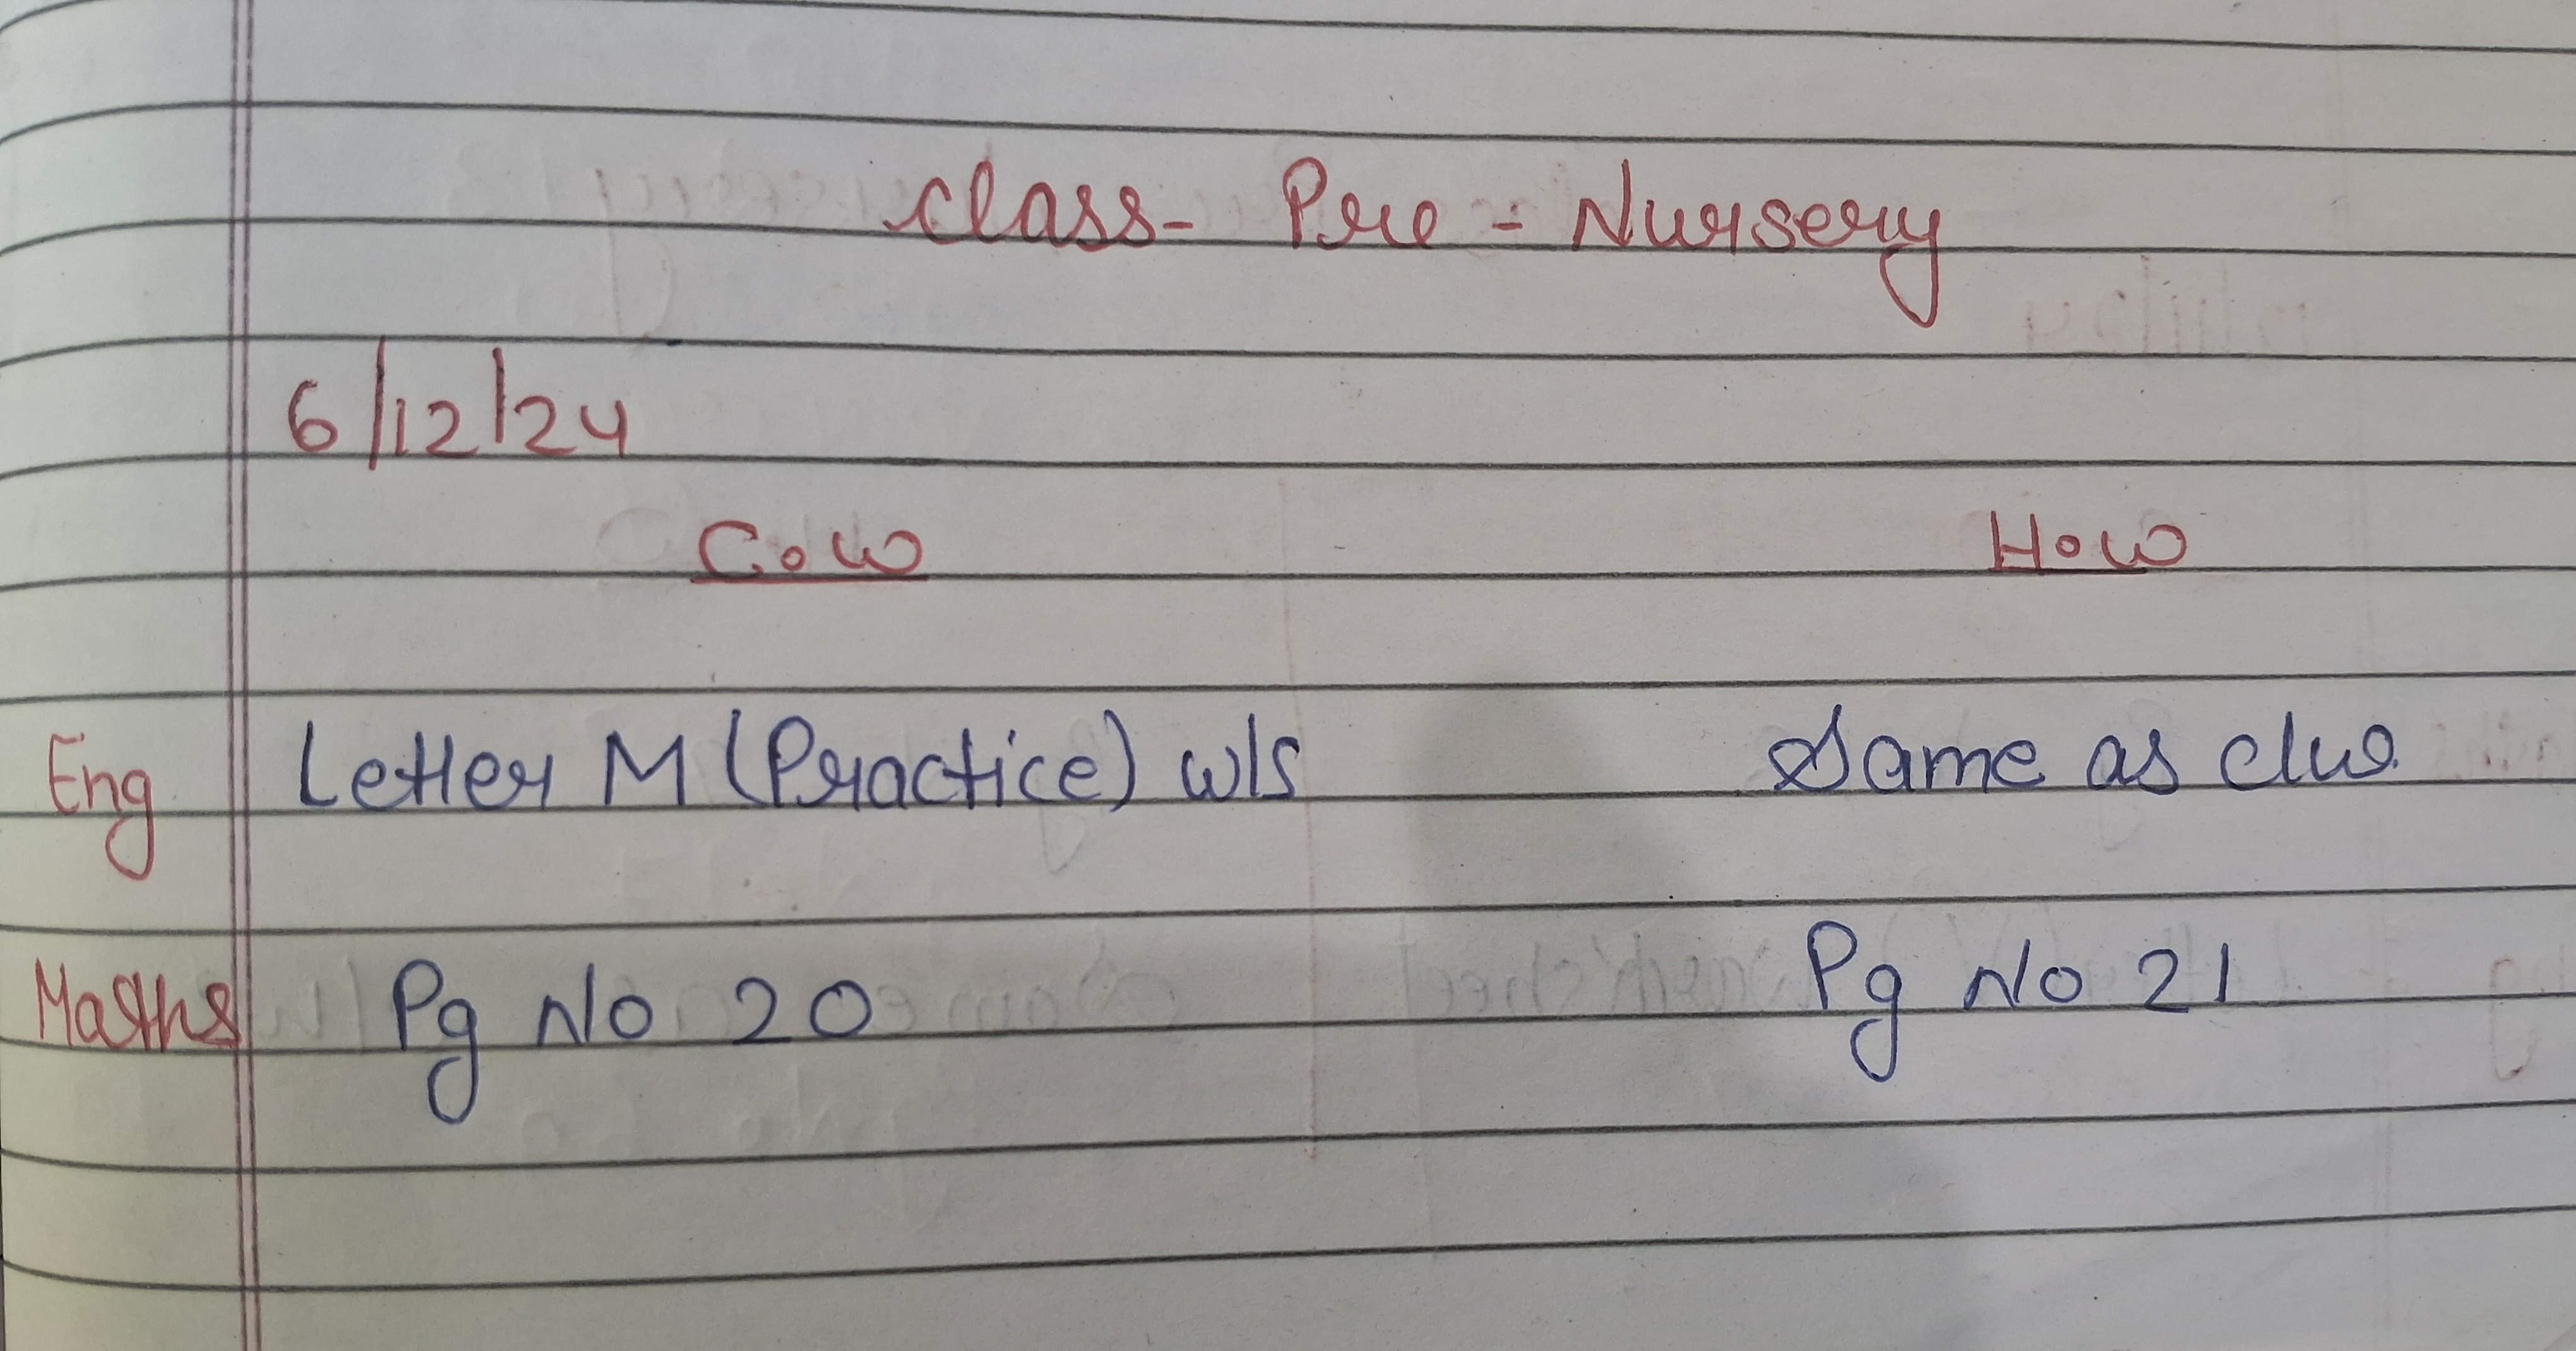 Class- Pre - Nursery
6/12/24
C.W H.W
Eng Letter M (Practice) w/s Same as c/w.
Maths Pg No 20 Pg No 21